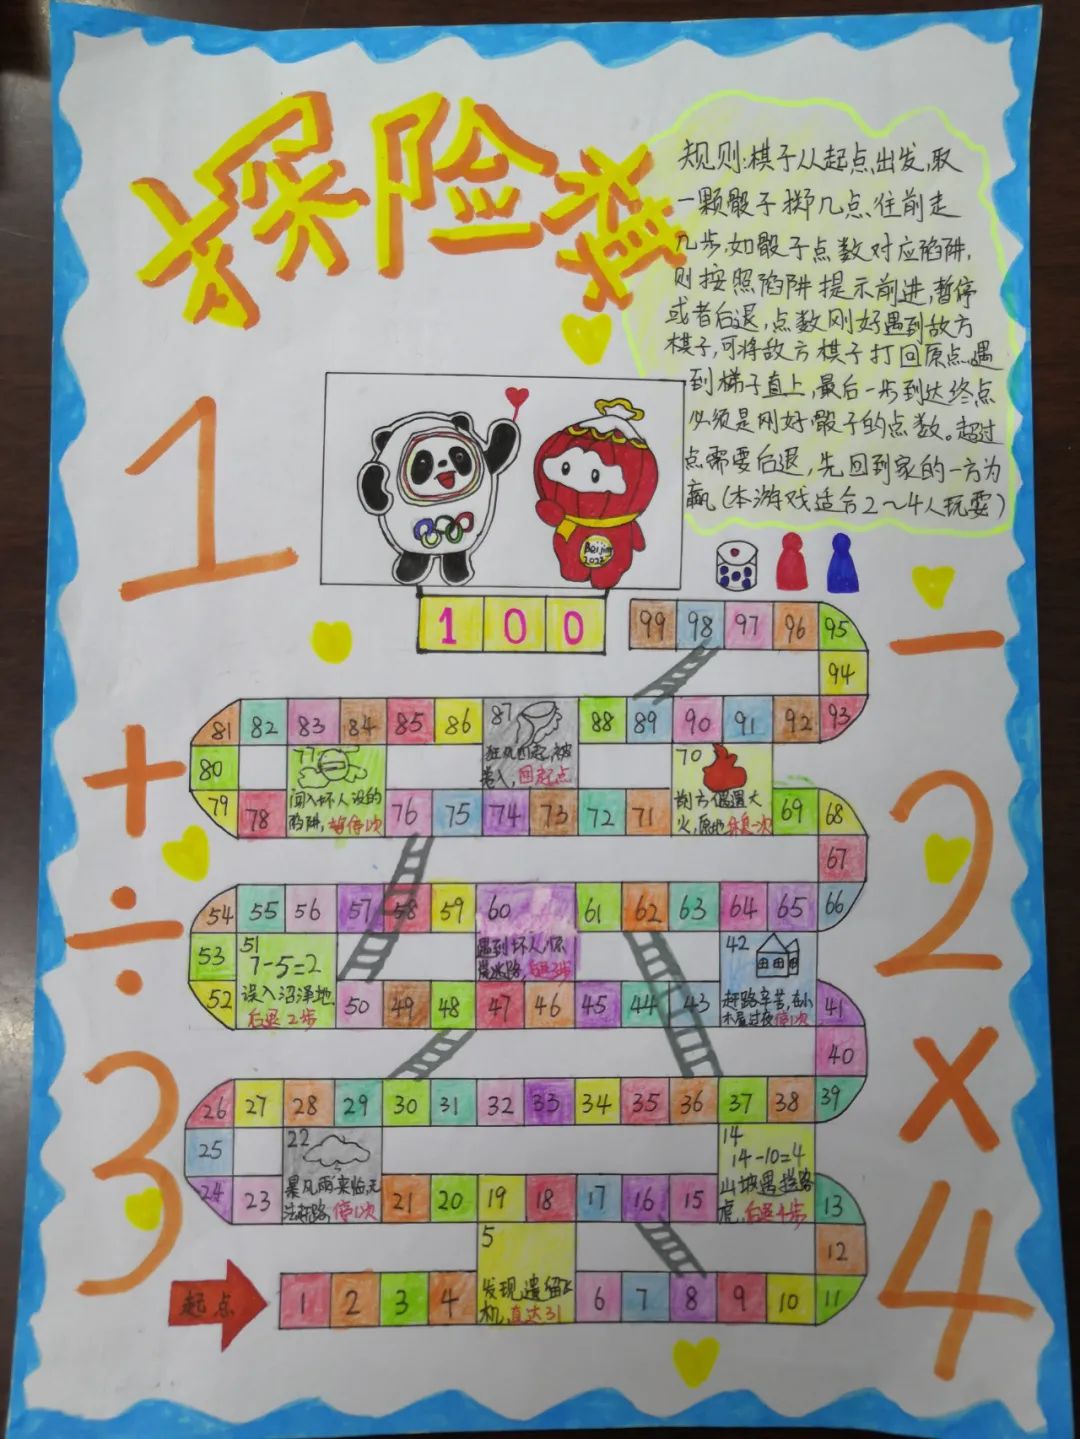 探险棋
规则:棋子从起点出发,取
一颗骰子掷几点往前走
几步,如骰子点数对应陷阱,
则按照陷阱提示前进,暂停
或者后退,点数刚好遇到敌方
棋子,可将敌方棋子打回原点,遇
到梯子直上,最后一步到达终点
必须是刚好骰子的点数。超过
点需要后退,先回到家的一方为
赢(本游戏适合2~4人玩耍)
1
Beijing
2022
100
99 98 97 96 95
94
—
81 82 83 84 85 86 87 88 89 90 91 92 93
狂风四起,被
卷入,回起点
+
80
77
闯入坏人设的
陷阱,暂停1次
70
前方偶遇大
火,原地休息一次
79 78 76 75 74 73 72 71 69 68
67
2
÷
54 55 56 57 58 59 60 61 62 63 64 65 66
遇到坏人,
迷路,后退3步
53
51
7-5=2
误入沼泽地
后退2步
42
赶路辛苦,在小
木屋过夜停1次
52 50 49 48 47 46 45 44 43 41
40
×
3
26 27 28 29 30 31 32 33 34 35 36 37 38 39
25
22
暴风雨来临,无
法赶路,停1次
14
14-10=4
山坡遇拦路
虎,后退4步
24 23 21 20 19 18 17 16 15 13
12
4
5
发现遗留飞
机,直达31
起点
1 2 3 4 6 7 8 9 10 11